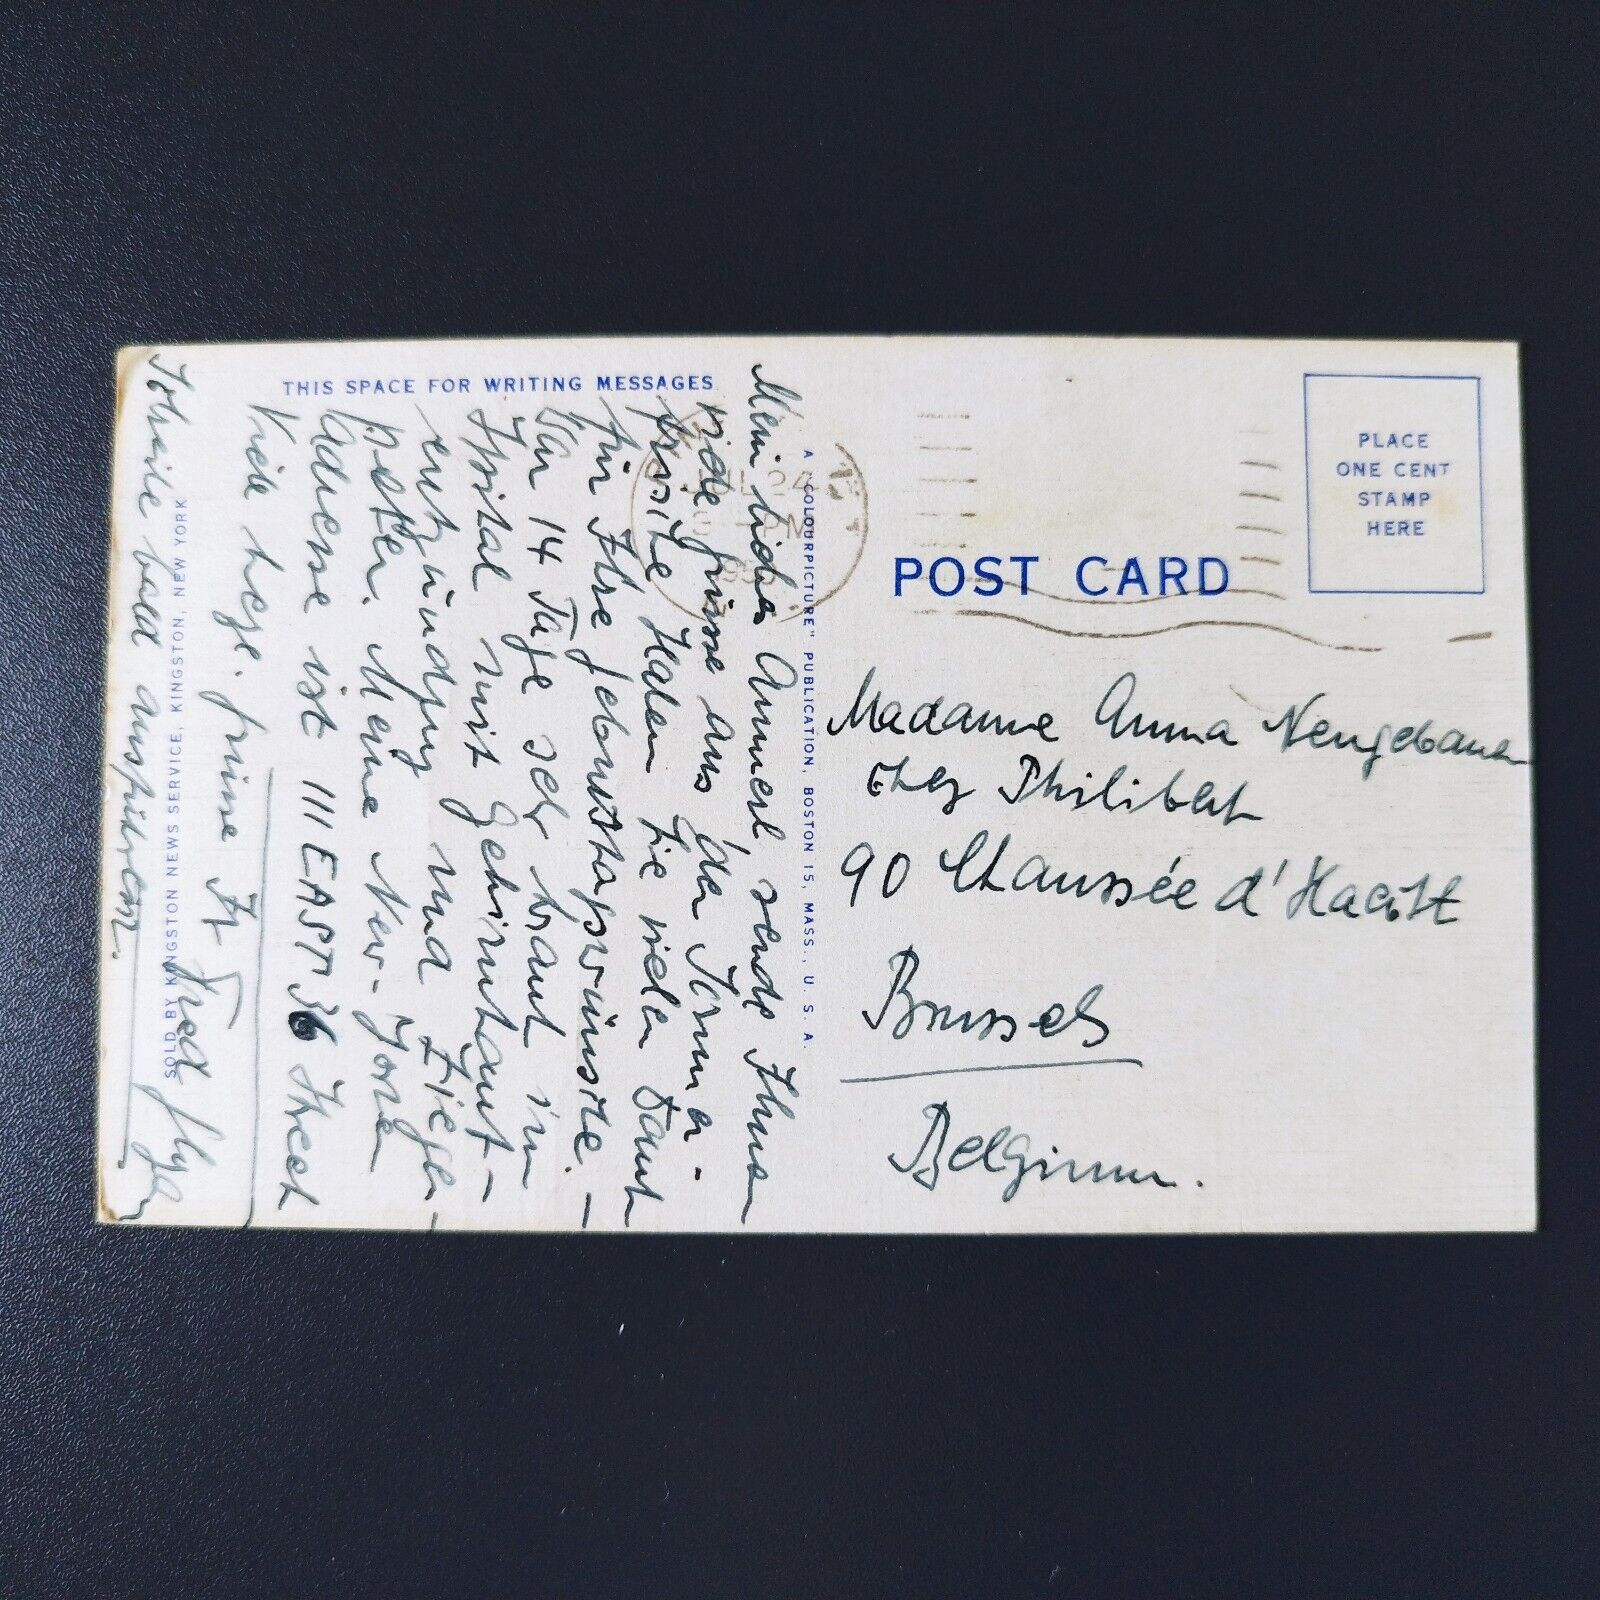 THIS SPACE FOR WRITING MESSAGES
Mein liebes Annerl, sende Ihnen
viele Grüsse aus der Sommer-
frische. Haben Sie vielen Dank
für Ihre Geburtstagswünsche. –
War 14 Tage sehr krank im
Spital mit Gehirnhaut-
entzündung und Fieber.
Meine New-Yorker
Adresse ist 111 EAST 36 Street
Viele herzl. Grüsse Ihr
Fred
Schreibe bald ausführlich.
SOLD BY KINGSTON NEWS SERVICE, KINGSTON, NEW YORK
A "COLOURPICTURE" PUBLICATION, BOSTON 15, MASS., U. S. A.
24
POST CARD
PLACE
ONE CENT
STAMP
HERE
Madame Anna Neugebauer
chez Philibert
90 Chaussée d'Haecht
Brussels
Belgium.